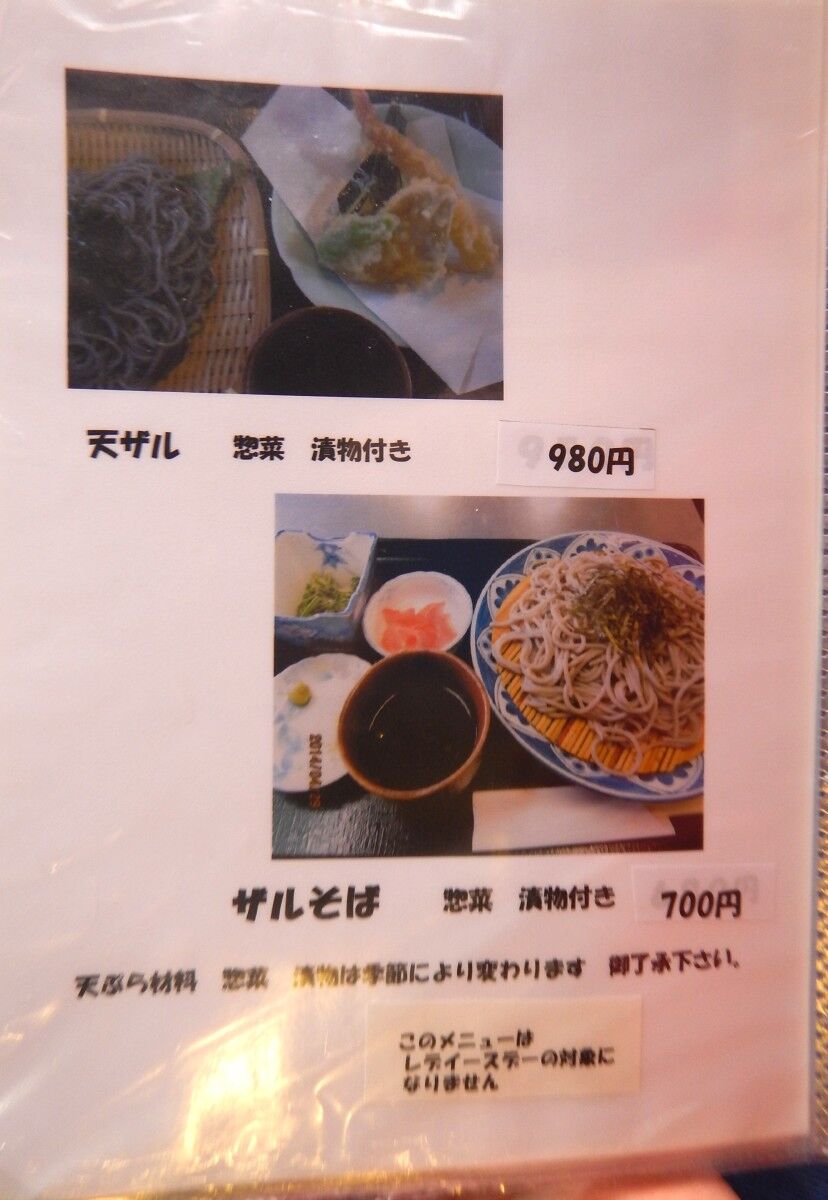 天ザル　惣菜　漬物付き　980円
2014/04/29
ザルそば　惣菜　漬物付き　700円
天ぷら材料　惣菜　漬物は季節により変わります　御了承下さい。
このメニューは
レディースデーの対象に
なりません